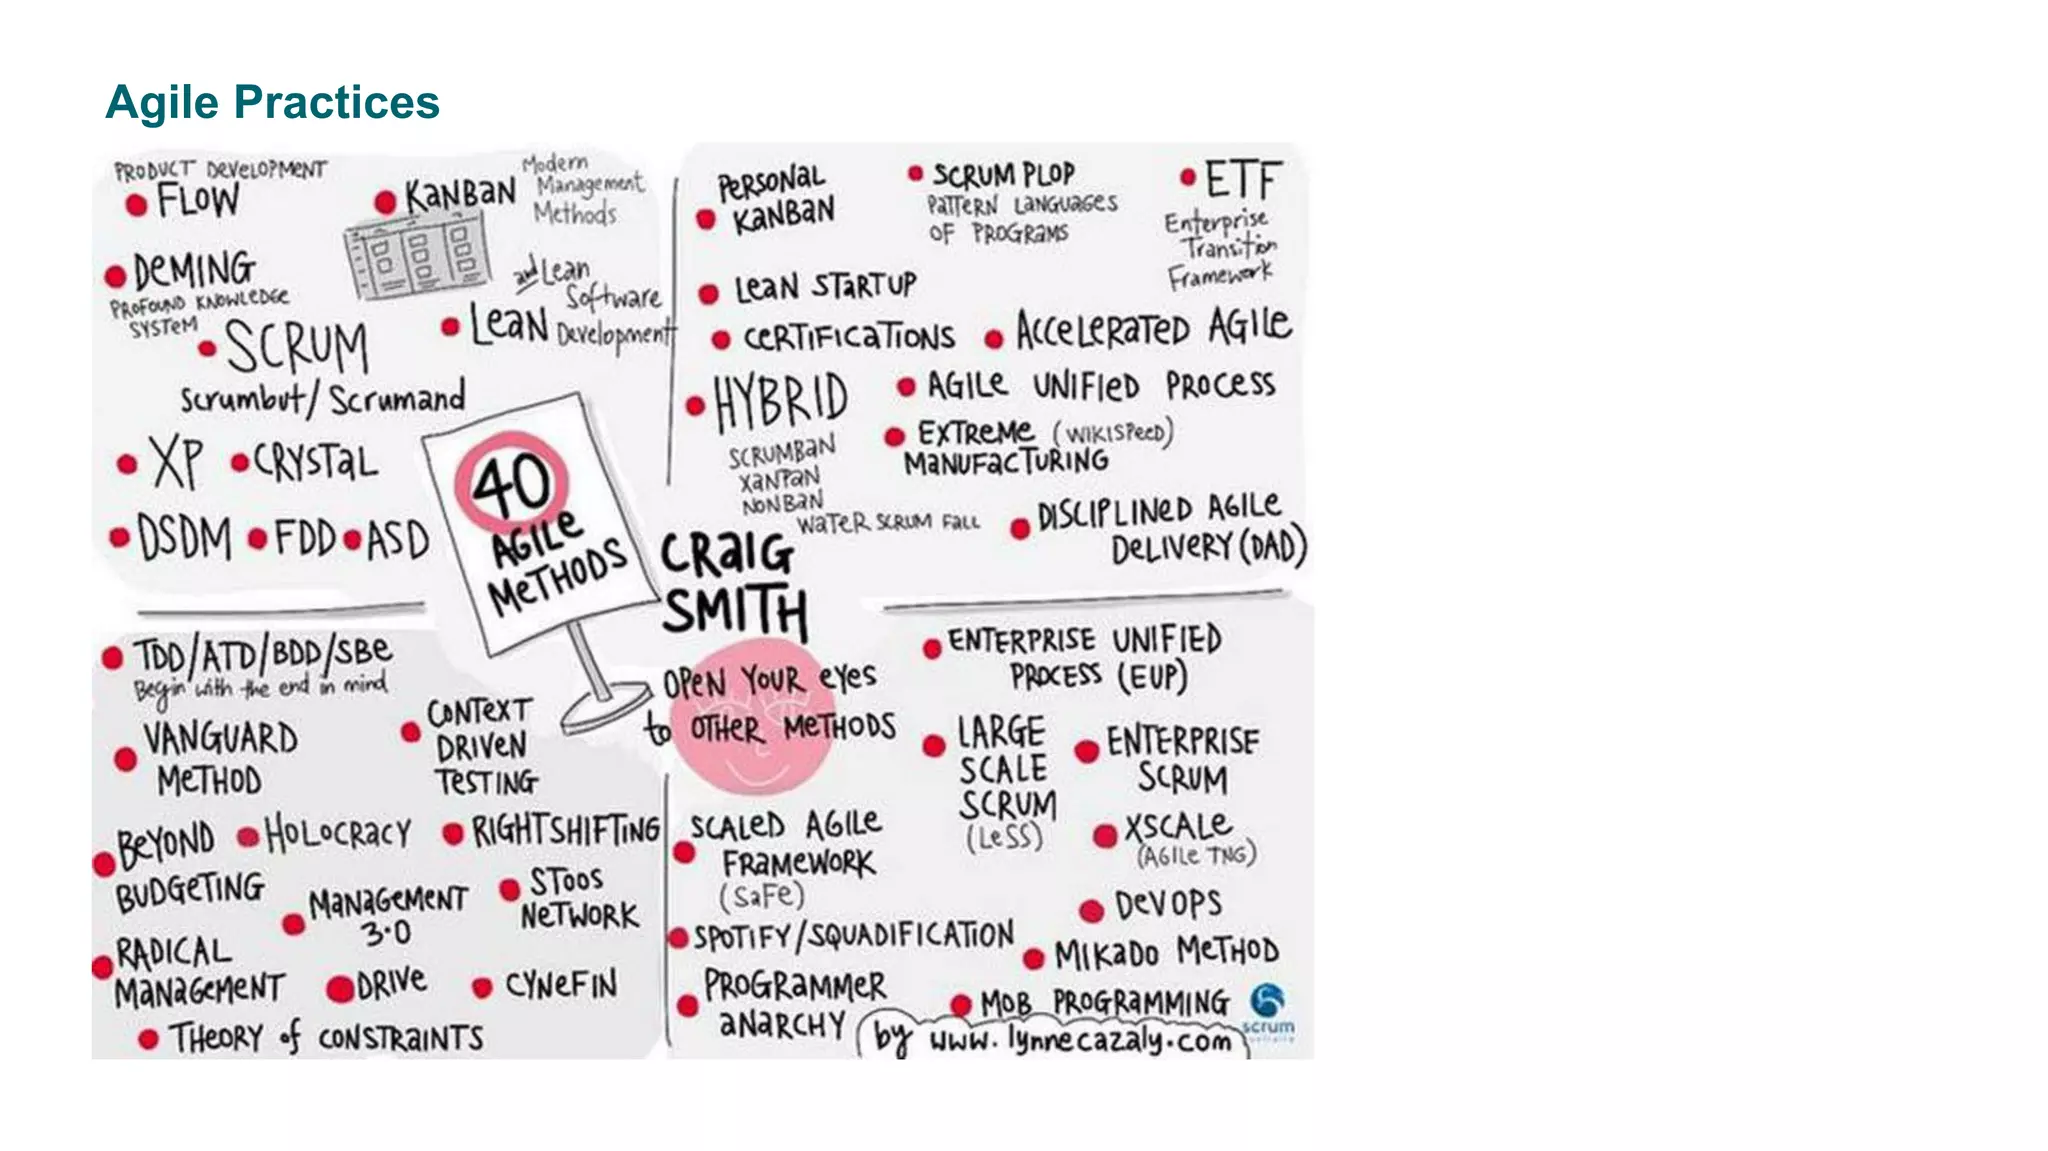 Agile Practices
PRODUCT DEVELOPMENT
FLOW
KANBAN
Modern
Management
Methods
DEMING
PROFOUND KNOWLEDGE
SYSTEM
and Lean
Software
LEAN Development
SCRUM
Scrumbut/ Scrumand
XP CRYSTAL
DSDM FDD ASD
40
AGILE
METHODS
PERSONAL
KANBAN
SCRUM PLOP
PATTERN LANGUAGES
OF PROGRAMS
ETF
Enterprise
Transition
Framework
LEAN STARTUP
CERTIFICATIONS
ACCELERATED AGILE
HYBRID
SCRUMBAN
XANPAN
NONBAN
WATER SCRUM FALL
AGILE UNIFIED PROCESS
EXTREME (WIKISPEED)
MANUFACTURING
DISCIPLINED AGILE
DELIVERY (DAD)
CRAIG
SMITH
OPEN YOUR EYES
to OTHER METHODS
TDD/ATD/BDD/SBE
Begin with the end in mind
VANGUARD
METHOD
CONTEXT
DRIVEN
TESTING
BEYOND
BUDGETING
HOLOCRACY
RIGHTSHIFTING
MANAGEMENT
3.0
STOOS
NETWORK
RADICAL
MANAGEMENT
DRIVE
CYNEFIN
THEORY of CONSTRAINTS
ENTERPRISE UNIFIED
PROCESS (EUP)
LARGE
SCALE
SCRUM
(LeSS)
ENTERPRISE
SCRUM
SCALED AGILE
FRAMEWORK
(SaFe)
XSCALE
(AGILE TNG)
DEVOPS
SPOTIFY/SQUADIFICATION
MIKADO METHOD
PROGRAMMER
ANARCHY
MOB PROGRAMMING
by www.lynnecazaly.com
scrum